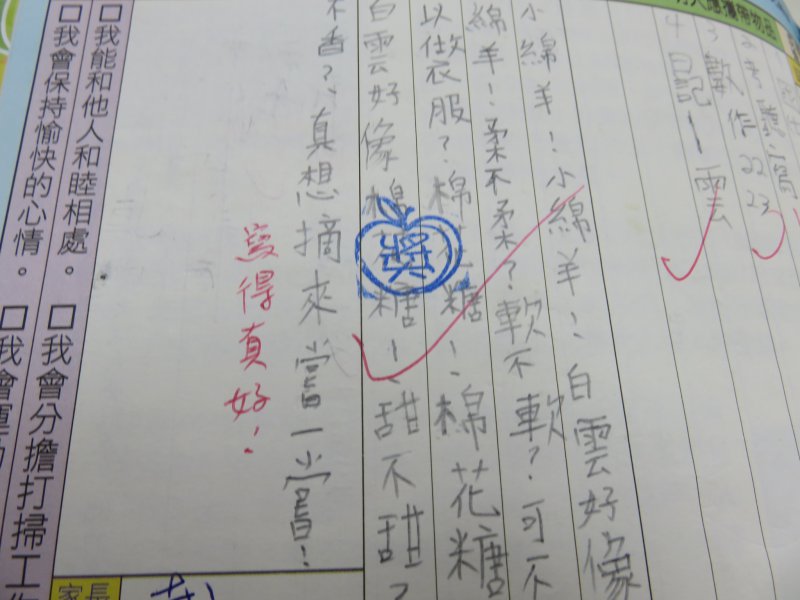 日記-雲
小綿羊!小綿羊!白雲好像
綿羊!柔不柔?軟不軟?可不
以做衣服?棉花糖!棉花糖
白雲好像棉花糖!甜不甜?
不香?真想摘來當一嘗!
獎
寫得真好!
□我能和他人和睦相處。□我會分擔打掃工
□我會保持愉快的心情。□我會運
家長